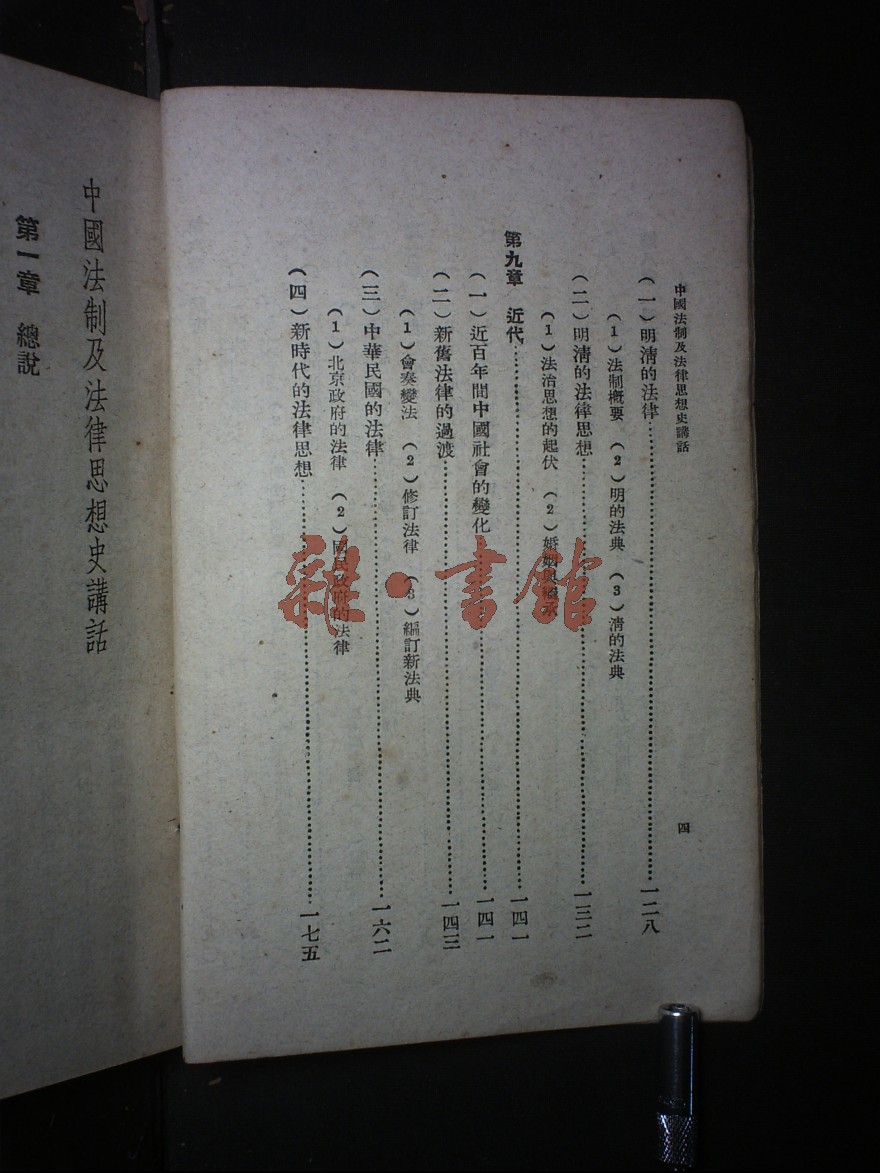 中國法制及法律思想史講話
四
（一）明淸的法律……一二八
（1）法制概要 （2）明的法典 （3）淸的法典
（二）明淸的法律思想……一三二
（1）法治思想的起伏 （2）婚姻與繼承
第九章 近代……一四一
（一）近百年間中國社會的變化……一四一
（二）新舊法律的過渡……一四三
（1）會奏變法 （2）修訂法律 （3）編訂新法典
（三）中華民國的法律……一六二
（1）北京政府的法律 （2）國民政府的法律
（四）新時代的法律思想……一七五
中國法制及法律思想史講話
第一章 總說
雜·書館